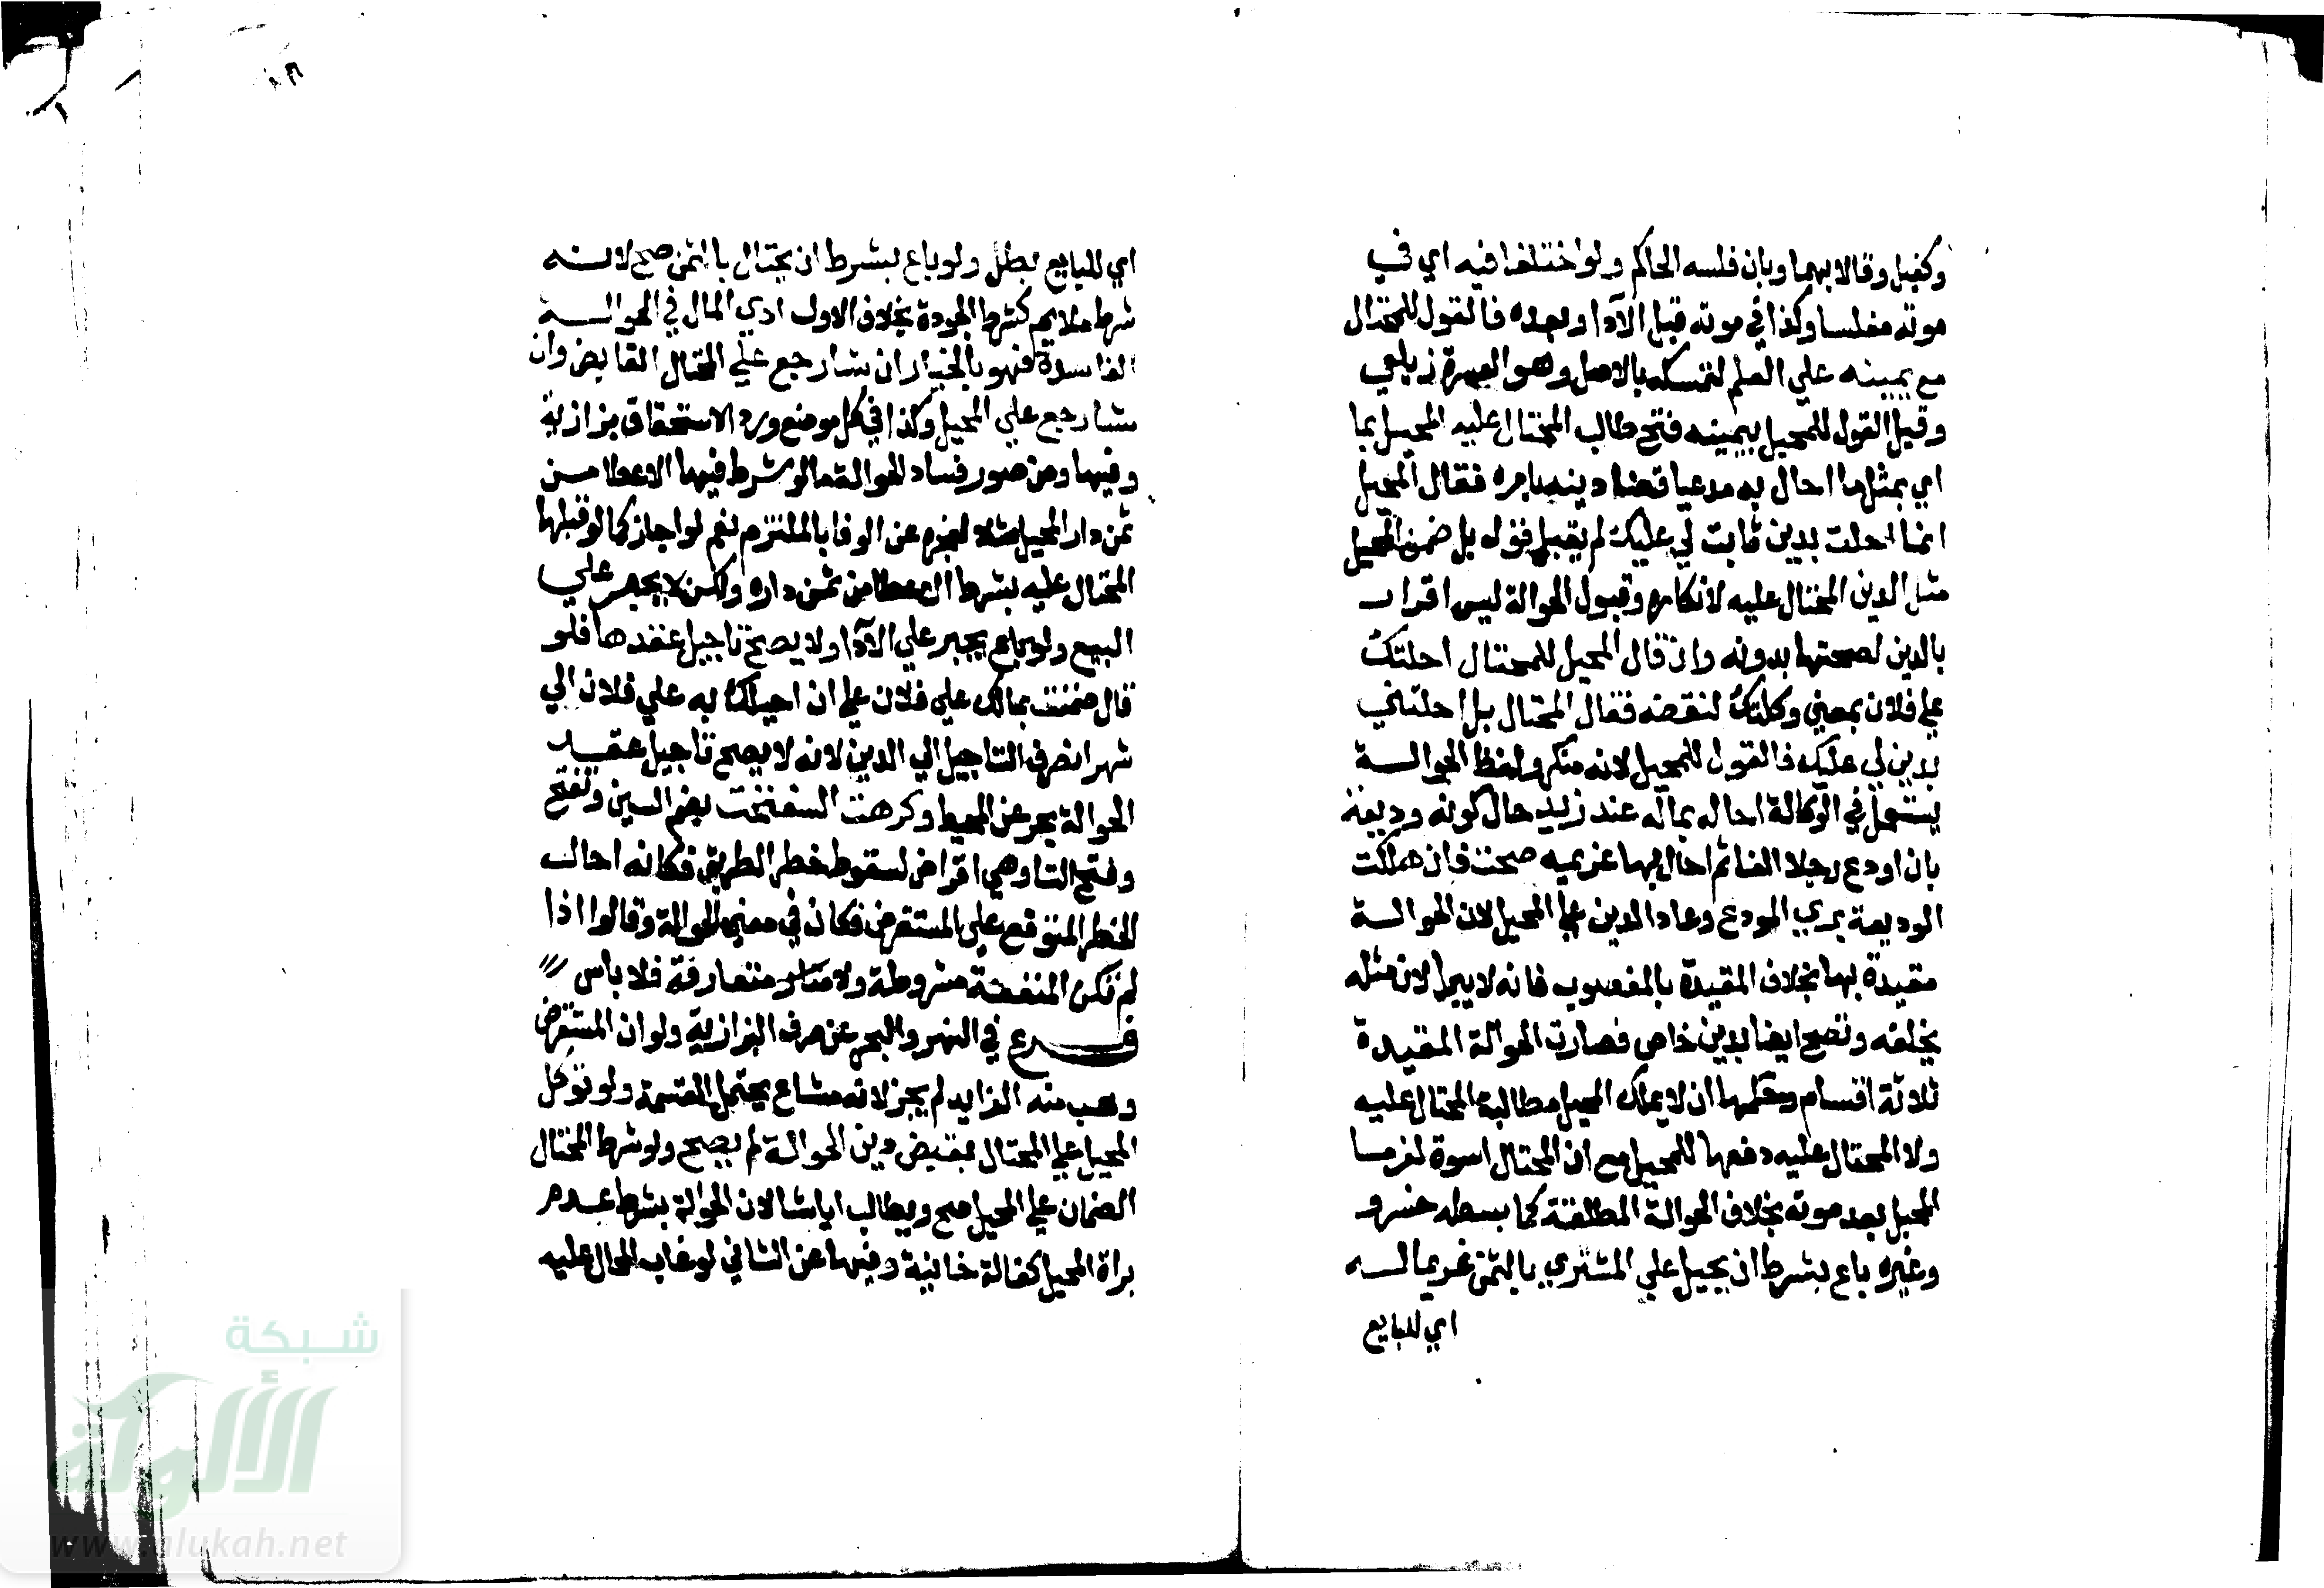 وكفيل وقالا بهما وبان فلسه الحاكم ولو اختلفا فيه اي في
موته مفلسا وكذا في موته قبل الآدا وبعده فالقول للمحتال
مع يمينه علي العلم لتمسكه بالاصل وهو العسرة زيلعي
وقيل القول للمحيل بيمينه فتح طالب المحتال عليه المحيل بما
اي بمثل ما احال به مدعيا قضا دينه بامره فقال المحيل
انما احلت بدين ثابت لي عليك لم يقبل قوله بل ضمن المحيل
مثل الدين المحتال عليه لانكاره وقبول الحوالة ليس اقرار
بالدين لصحتها بدونه وان قال المحيل للمحتال احلتك
علي فلان بمعني وكلتك لتقبضه فقال المحتال بل احلتني
بدين لي عليك فالقول للمحيل لانه منكر ولفظ الحوالة
يستعمل في الوكالة احاله بماله عند زيد حال كونه وديعة
بان اودع رجلا الفا ثم احال بها غريمه صحت فان هلكت
الوديعة بري المودع وعاد الدين علي المحيل لان الحوالة
مقيدة بها بخلاف المقيدة بالمغصوب فانه لا يبرا لان مثله
يخلفه وتصح ايضا بدين خاص فصارت الحوالة المقيدة
ثلاثة اقسام وحكمها ان لا يملك المحيل مطالبة المحتال عليه
ولا المحتال عليه دفعها للمحيل مع ان المحتال اسوة لغرما
المحيل بعد موته بخلاف الحوالة المطلقة كما بسطه خسرو
وغيره باع بشرط ان يحيل علي المشتري بالثمن غريما له
اي للبايع
اي للبايع بطل ولو باع بشرط ان يحتال بالثمن صح لانه
شرط ملايم كشرط الجودة بخلاف الاول ادي المال في الحوالة
الفاسدة فهو بالخيار ان شا رجع علي المحتال القابض وان
شا رجع علي المحيل وكذا في كل موضع ورد الاستحقاق بزازية
وفيها ومن صور فساد الحوالة ما لو شرط فيها الاعطا من
ثمن دار المحيل مثلا لعجزه عن الوفا بالملتزم نعم لو اجاز كما لو قبلها
المحتال عليه بشرط الاعطا من ثمن داره ولكن لا يجبر علي
البيع ولو باع يجبر علي الآدا ولا يصح تاجيل عقدها فلو
قال ضمنت بمالك علي فلان علي ان احيلك به علي فلان الي
شهر انصرف التاجيل الي الدين لانه لا يصح تاجيل عقد
الحوالة بحر عن المحيط وكرهت السفتجة بضم السين وتفتح
وفتح التا وهي اقراض لسقوط خطر الطريق فكانه احال
الخطر المتوقع علي المستقرض فكان في معني الحوالة وقالوا اذا
لم تكن المنفعة مشروطة ولا متعارفة فلا باس
فرع في النهر والبحر عن صرف البزازية ولو ان المستقرض
وهب منه الزايد لم يجز لانه مشاع يحتمل القسمة ولو توكل
المحيل علي المحتال بقبض دين الحوالة لم يصح ولو شرط المحتال
الضمان علي المحيل صح ويطالب ايا شا لان الحوالة بشرط عدم
براة المحيل كفالة خانية وفيها عن الثاني لو غاب المحال عليه
شبكة
الألوكة
www.alukah.net